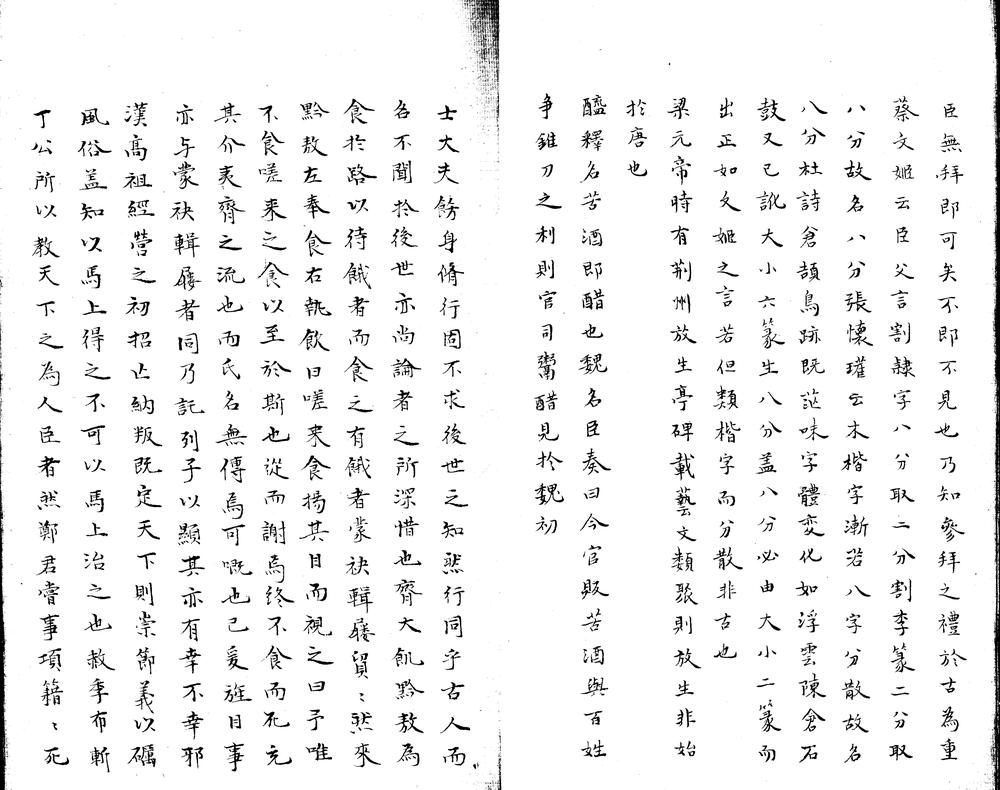 臣無拜即可矣不即不見也乃知參拜之禮於古為重
蔡文姬云臣父言割隸字八分取二分割李篆二分取
八分故名八分張懷瓘云本楷字漸若八字分散故名
八分杜詩倉頡鳥跡既茫昧字體變化如浮雲陳倉石
鼓又已訛大小六篆生八分蓋八分必由大小二篆而
出正如文姬之言若但類楷字而分散非古也
梁元帝時有荆州放生亭碑載藝文類聚則放生非始
於唐也
醯釋名苦酒即醋也魏名臣奏曰今官販苦酒與百姓
争錐刀之利則官司鬻醋見於魏初
士大夫飭身脩行固不求後世之知然行同乎古人而
名不聞於後世亦尚論者之所深惜也齊大飢黔敖為
食於路以待餓者而食之有餓者蒙袂輯屨貿〻然來
黔敖左奉食右執飲曰嗟來食揚其目而視之曰予唯
不食嗟来之食以至於斯也從而謝焉終不食而死充
其介夷齊之流也而氏名無傳焉可嘅也已爰旌目事
亦与蒙袂輯屨者同乃託列子以顯其亦有幸不幸邪
漢高祖經營之初招亡納叛既定天下則崇節義以礪
風俗盖知以馬上得之不可以馬上治之也赦季布斬
丁公所以教天下之為人臣者然鄭君嘗事項籍〻死